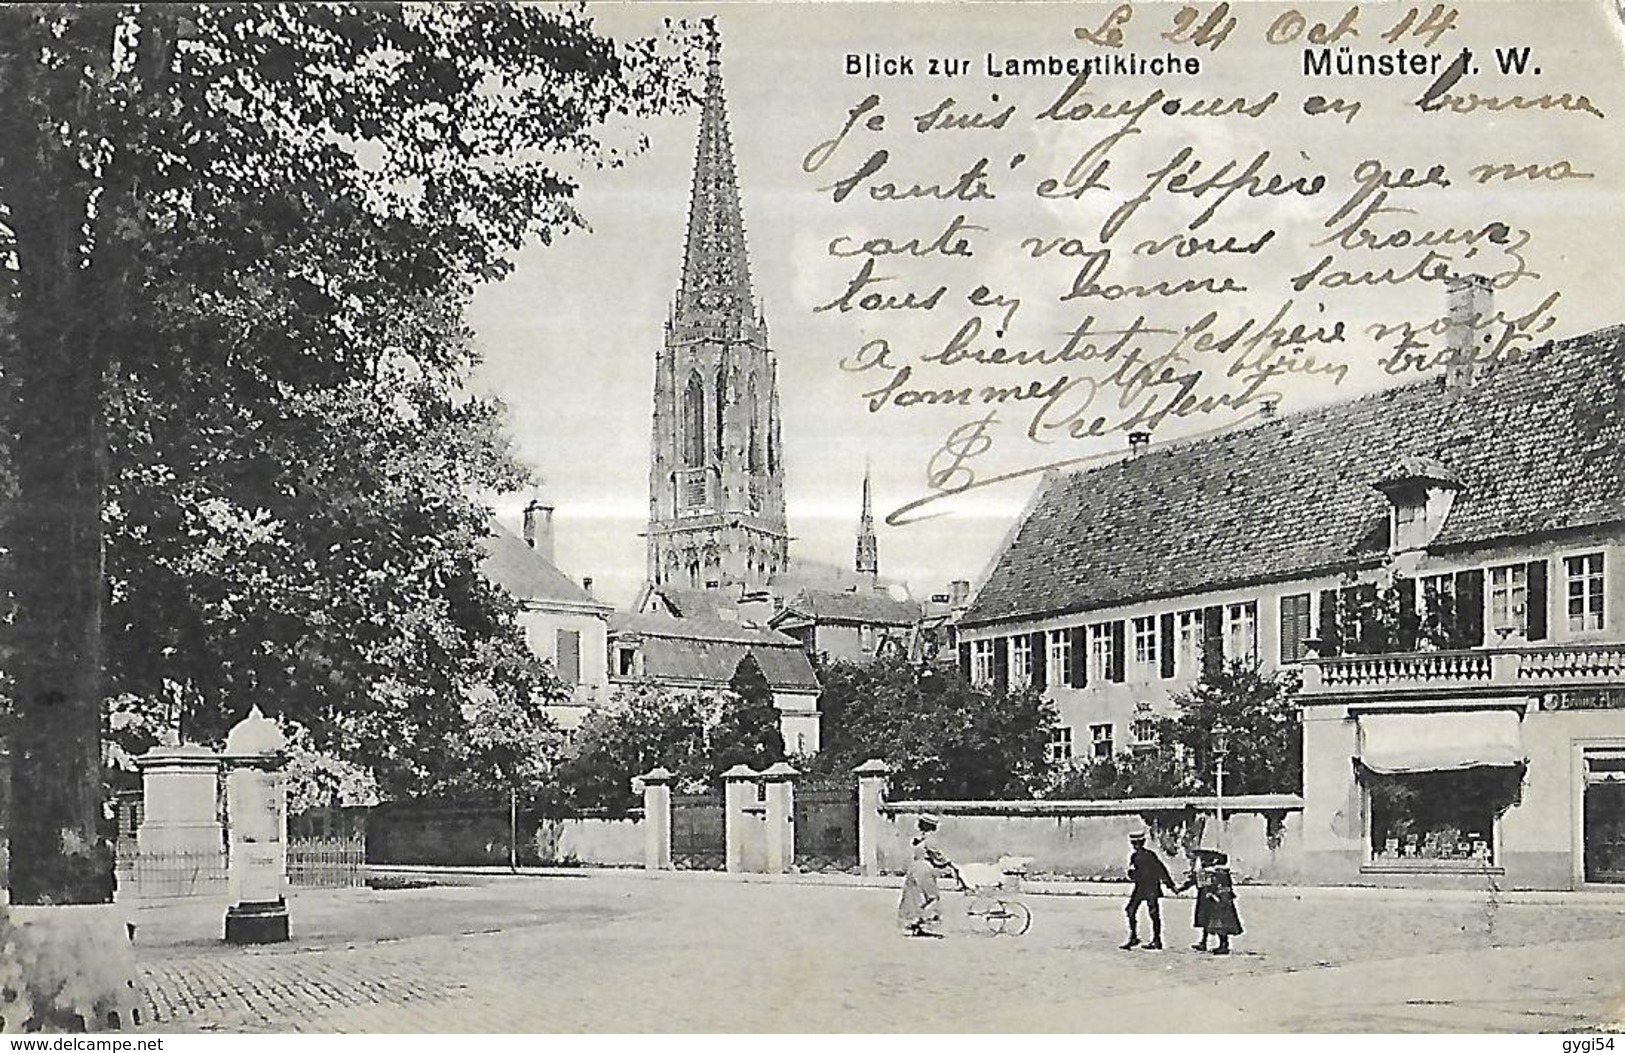 Le 24 Oct 14
Blick zur Lambertikirche Münster i. W.
Je suis toujours en bonne
santé et j'éspère que ma
carte va vous trouvez
tous en bonne santé
a bientot, j'espère nous
sommes très bien traité
Cressent
gygi54